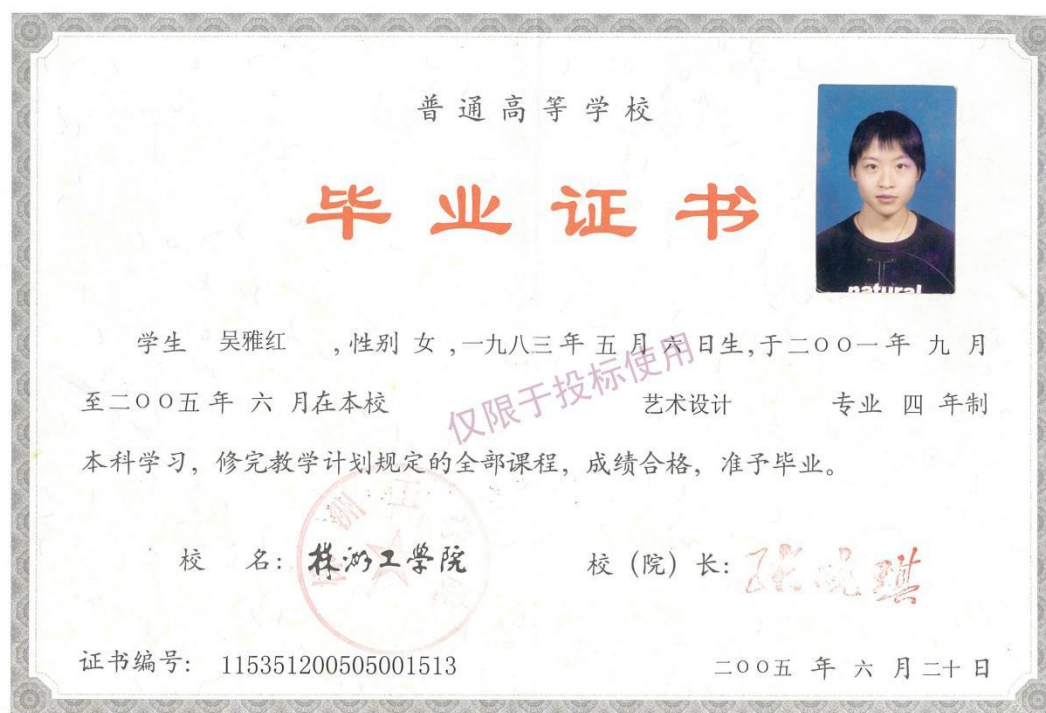 普通高等学校
毕业证书
natural
学生 吴雅红 ,性别 女 ,一九八三年 五 月 六 日生,于二〇〇一年 九 月
至二〇〇五年 六 月在本校 艺术设计 专业 四 年制
仅限于投标使用
本科学习，修完教学计划规定的全部课程，成绩合格，准予毕业。
校 名：株洲工学院 校（院）长：张晓琪
证书编号： 115351200505001513 二〇〇五 年 六 月二十日